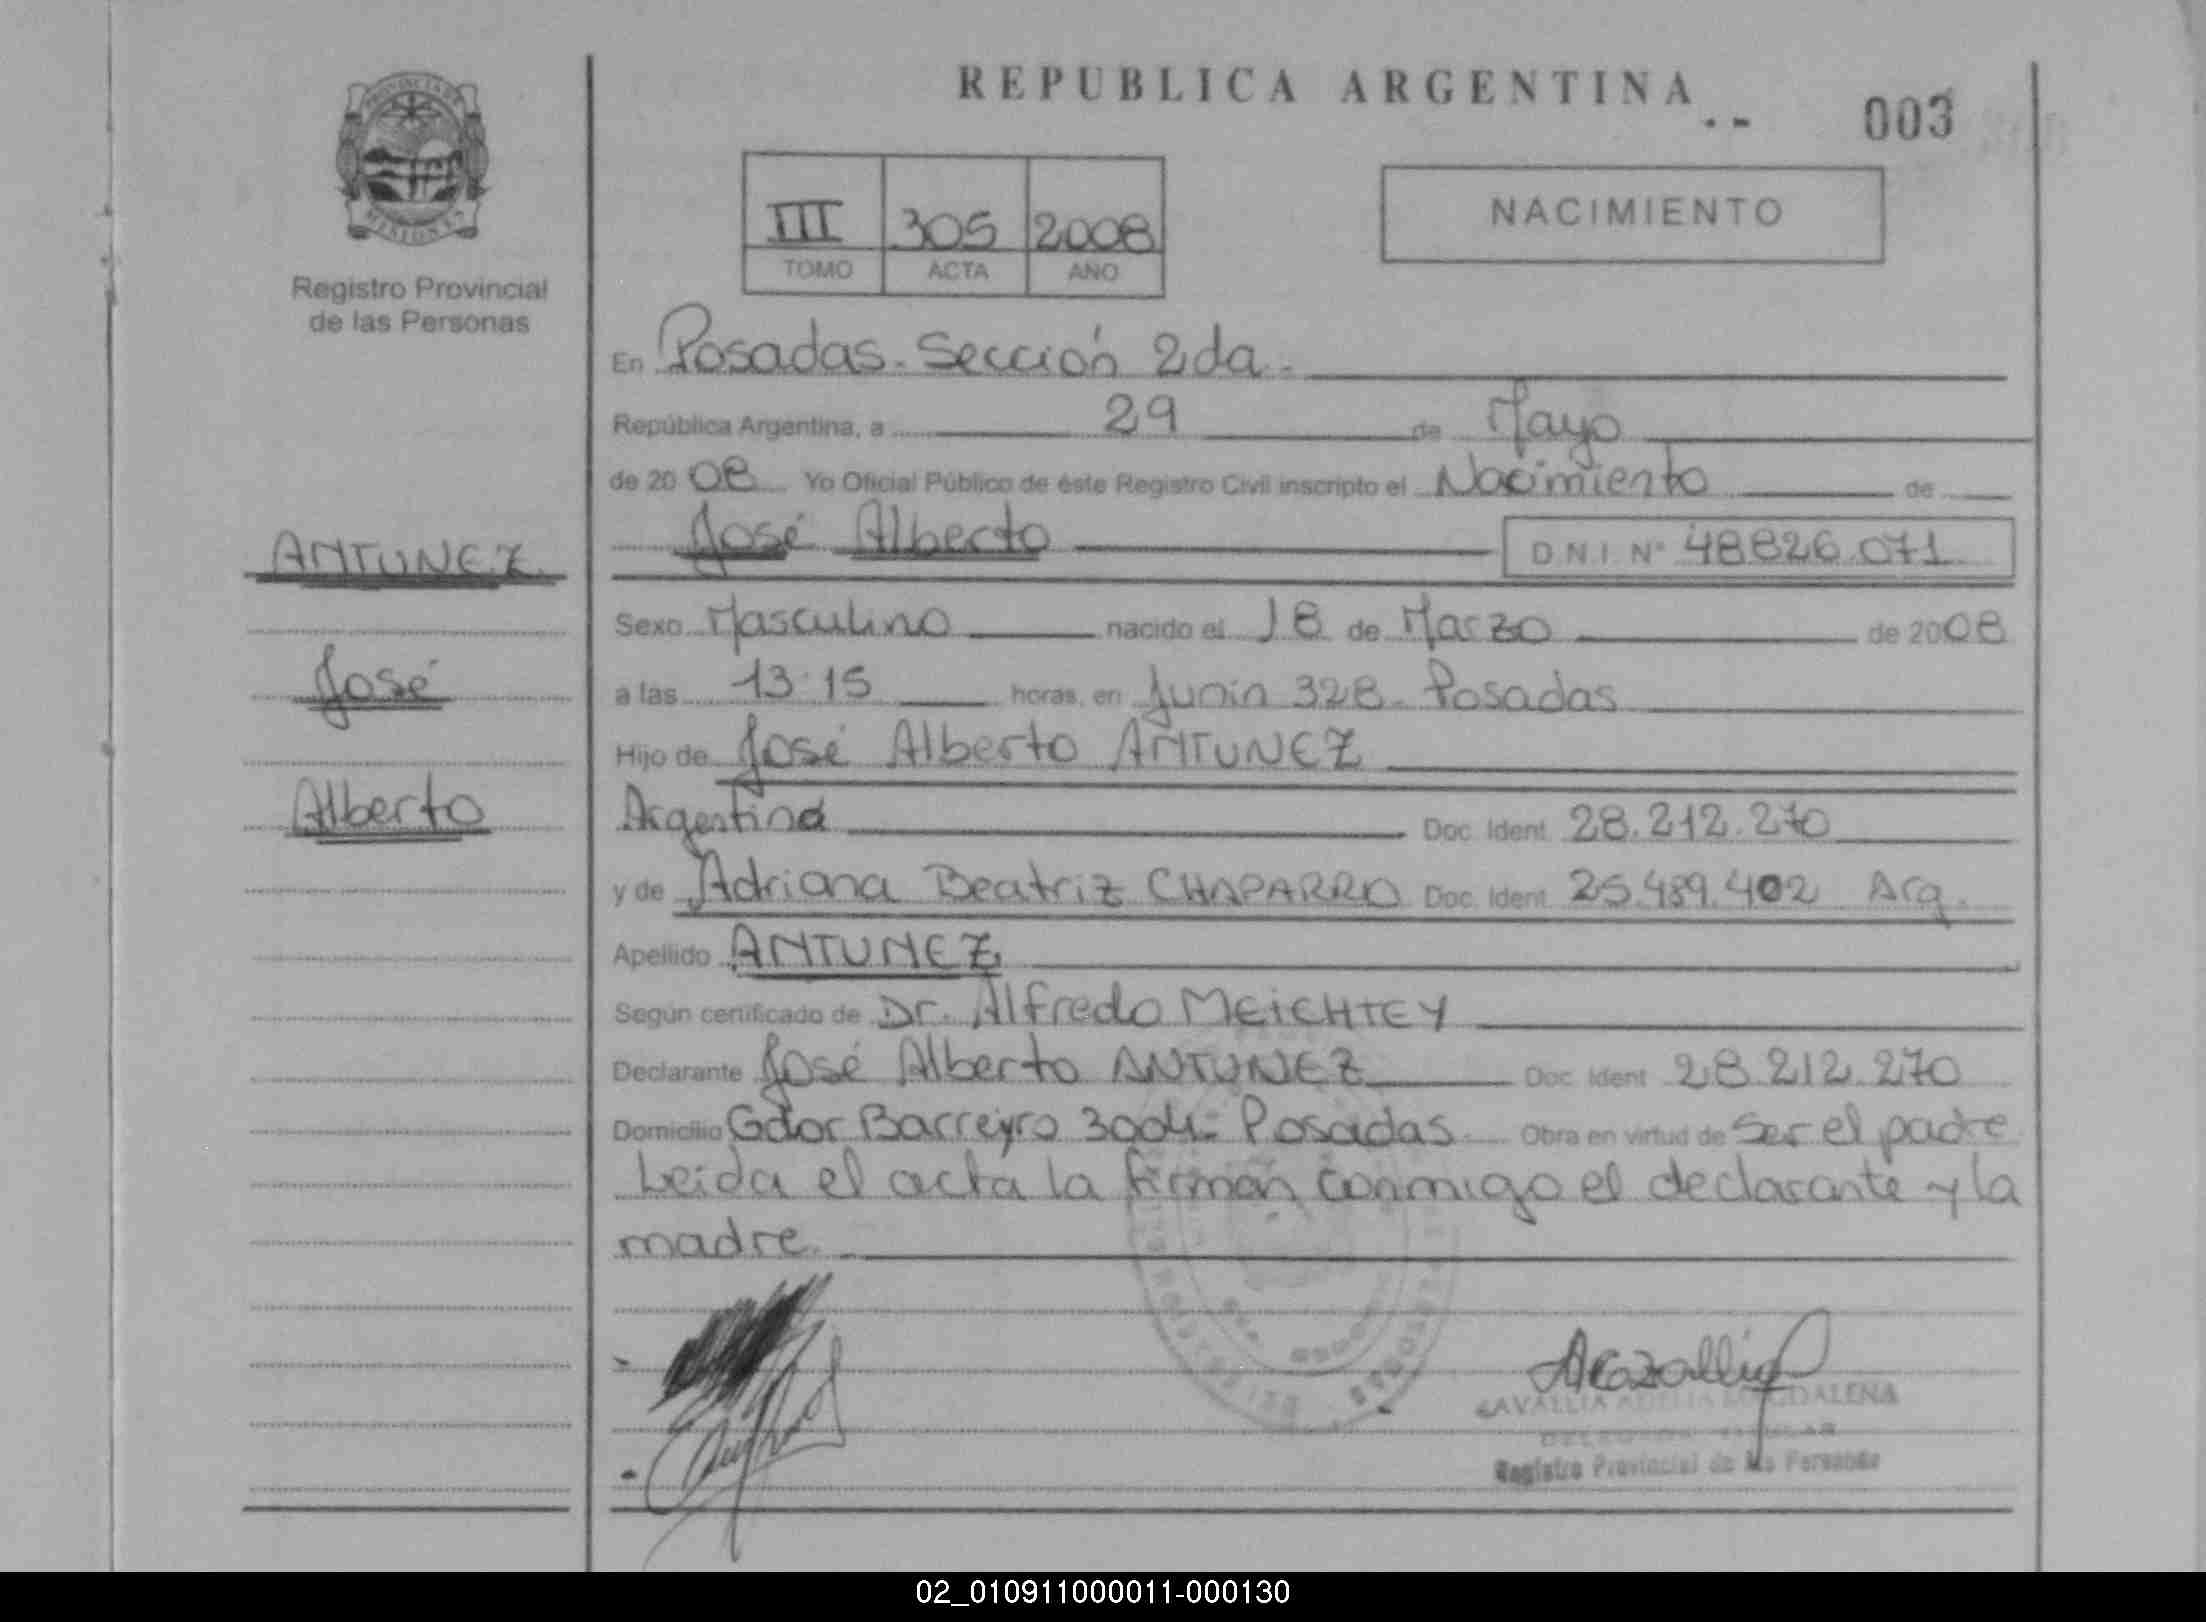 REPUBLICA ARGENTINA
003
PROVINCIA DE
MISIONES
Registro Provincial
de las Personas
III 305 2008
TOMO ACTA AÑO
NACIMIENTO
En Posadas. Sección 2da.
República Argentina, a 29 de Mayo
de 20 08 Yo Oficial Público de éste Registro Civil inscripto el Nacimiento de
José Alberto D.N.I. Nº 48826.071
ANTUNEZ
José
Alberto
Sexo Masculino nacido el 18 de Marzo de 2008
a las 13:15 horas, en Junin 328. Posadas
Hijo de José Alberto ANTUNEZ
Argentina Doc. Ident. 28.212.270
y de Adriana Beatriz CHAPARRO Doc. Ident. 25.489.402 Arg.
Apellido ANTUNEZ
Según certificado de Dr. Alfredo MEICHTEY
Declarante José Alberto ANTUNEZ Doc. Ident 28.212.270
Domicilio Gdor Barreyro 3004. Posadas. Obra en virtud de ser el padre
Leida el acta la firman conmigo el declarante y la
madre.
MAGDALENA
Registro Provincial de las Personas
02_010911000011-000130